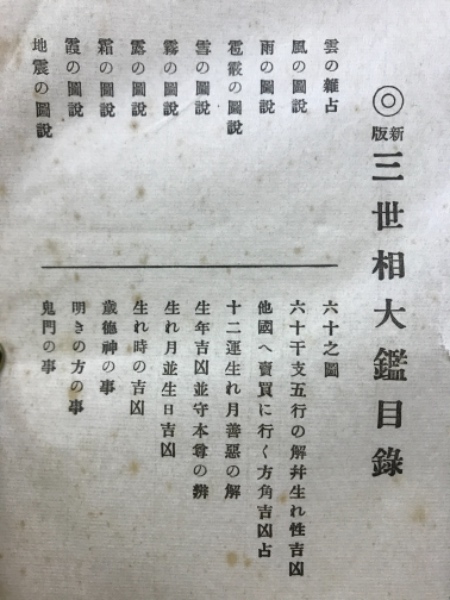 ◎新版 三世相大鑑目錄
雲の雜占
風の圖説
雨の圖説
雹霰の圖説
雪の圖説
霧の圖説
露の圖説
霜の圖説
霞の圖説
地震の圖説
六十之圖
六十干支五行の解幷生れ性吉凶
他國へ賣買に行く方角吉凶占
十二運生れ月善惡の解
生年吉凶並守本尊の辨
生れ月並生日吉凶
生れ時の吉凶
歲德神の事
明きの方の事
鬼門の事